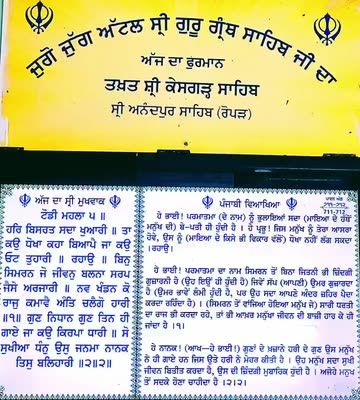 ਜੁਗੋ ਜੁੱਗ ਅੱਟਲ ਸ੍ਰੀ ਗੁਰੂ ਗ੍ਰੰਥ ਸਾਹਿਬ ਜੀ ਦਾ
ਅੱਜ ਦਾ ਫੁਰਮਾਨ
ਤਖ਼ਤ ਸ਼੍ਰੀ ਕੇਸਗੜ੍ਹ ਸਾਹਿਬ
ਸ੍ਰੀ ਅਨੰਦਪੁਰ ਸਾਹਿਬ (ਰੋਪੜ)
ਅੱਜ ਦਾ ਸ੍ਰੀ ਮੁਖਵਾਕ
ਟੋਡੀ ਮਹਲਾ ੫ ॥
ਹਰਿ ਬਿਸਰਤ ਸਦਾ ਖੁਆਰੀ ॥ ਤਾ
ਕਉ ਧੋਖਾ ਕਹਾ ਬਿਆਪੈ ਜਾ ਕਉ
ਓਟ ਤੁਹਾਰੀ ॥ ਰਹਾਉ ॥ ਬਿਨੁ
ਸਿਮਰਨ ਜੋ ਜੀਵਨੁ ਬਲਨਾ ਸਰਪ
ਜੈਸੇ ਅਰਜਾਰੀ ॥ ਨਵ ਖੰਡਨ ਕੋ
ਰਾਜੁ ਕਮਾਵੈ ਅੰਤਿ ਚਲੈਗੋ ਹਾਰੀ
॥੧॥ ਗੁਣ ਨਿਧਾਨ ਗੁਣ ਤਿਨ ਹੀ
ਗਾਏ ਜਾ ਕਉ ਕਿਰਪਾ ਧਾਰੀ ॥ ਸੋ
ਸੁਖੀਆ ਧੰਨੁ ਉਸੁ ਜਨਮਾ ਨਾਨਕ
ਤਿਸੁ ਬਲਿਹਾਰੀ ॥੨॥੨॥
ਪੰਜਾਬੀ ਵਿਆਖਿਆ
711-712
ਹੇ ਭਾਈ! ਪਰਮਾਤਮਾ (ਦੇ ਨਾਮ) ਨੂੰ ਭੁਲਾਇਆਂ ਸਦਾ (ਮਾਇਆ ਦੇ ਹੱਥੋਂ
ਮਨੁੱਖ ਦੀ) ਬੇ-ਪਤੀ ਹੀ ਹੁੰਦੀ ਹੈ । ਹੇ ਪ੍ਰਭੂ! ਜਿਸ ਮਨੁੱਖ ਨੂੰ ਤੇਰਾ ਆਸਰਾ
ਹੋਵੇ, ਉਸ ਨੂੰ (ਮਾਇਆ ਦੇ ਕਿਸੇ ਭੀ ਵਿਕਾਰ ਵੱਲੋਂ) ਧੋਖਾ ਨਹੀਂ ਲੱਗ ਸਕਦਾ
।ਰਹਾਉ।
ਹੇ ਭਾਈ! ਪਰਮਾਤਮਾ ਦਾ ਨਾਮ ਸਿਮਰਨ ਤੋਂ ਬਿਨਾ ਜਿਤਨੀ ਭੀ ਜ਼ਿੰਦਗੀ
ਗੁਜ਼ਾਰਨੀ ਹੈ (ਉਹ ਇਉਂ ਹੀ ਹੁੰਦੀ ਹੈ) ਜਿਵੇਂ ਸੱਪ (ਆਪਣੀ) ਉਮਰ ਗੁਜ਼ਾਰਦਾ
ਹੈ (ਉਮਰ ਭਾਵੇਂ ਲੰਮੀ ਹੁੰਦੀ ਹੈ, ਪਰ ਉਹ ਸਦਾ ਆਪਣੇ ਅੰਦਰ ਜ਼ਹਿਰ ਪੈਦਾ
ਕਰਦਾ ਰਹਿੰਦਾ ਹੈ) । (ਸਿਮਰਨ ਤੋਂ ਵਾਂਜਿਆ ਹੋਇਆ ਮਨੁੱਖ ਜੇ) ਸਾਰੀ ਧਰਤੀ
ਦਾ ਰਾਜ ਭੀ ਕਰਦਾ ਰਹੇ, ਤਾਂ ਭੀ ਆਖ਼ਰ ਮਨੁੱਖਾ ਜੀਵਨ ਦੀ ਬਾਜ਼ੀ ਹਾਰ ਕੇ ਹੀ
ਜਾਂਦਾ ਹੈ ।੧।
ਹੇ ਨਾਨਕ! (ਆਖ—ਹੇ ਭਾਈ!) ਗੁਣਾਂ ਦੇ ਖ਼ਜ਼ਾਨੇ ਹਰੀ ਦੇ ਗੁਣ ਉਸ ਮਨੁੱਖ
ਨੇ ਹੀ ਗਾਏ ਹਨ ਜਿਸ ਉਤੇ ਹਰੀ ਨੇ ਮੇਹਰ ਕੀਤੀ ਹੈ । ਉਹ ਮਨੁੱਖ ਸਦਾ ਸੁਖੀ
ਜੀਵਨ ਬਿਤੀਤ ਕਰਦਾ ਹੈ, ਉਸ ਦੀ ਜ਼ਿੰਦਗੀ ਮੁਬਾਰਿਕ ਹੁੰਦੀ ਹੈ । ਅਜੇਹੇ ਮਨੁੱਖ
ਤੋਂ ਸਦਕੇ ਹੋਣਾ ਚਾਹੀਦਾ ਹੈ ।੨।੨।